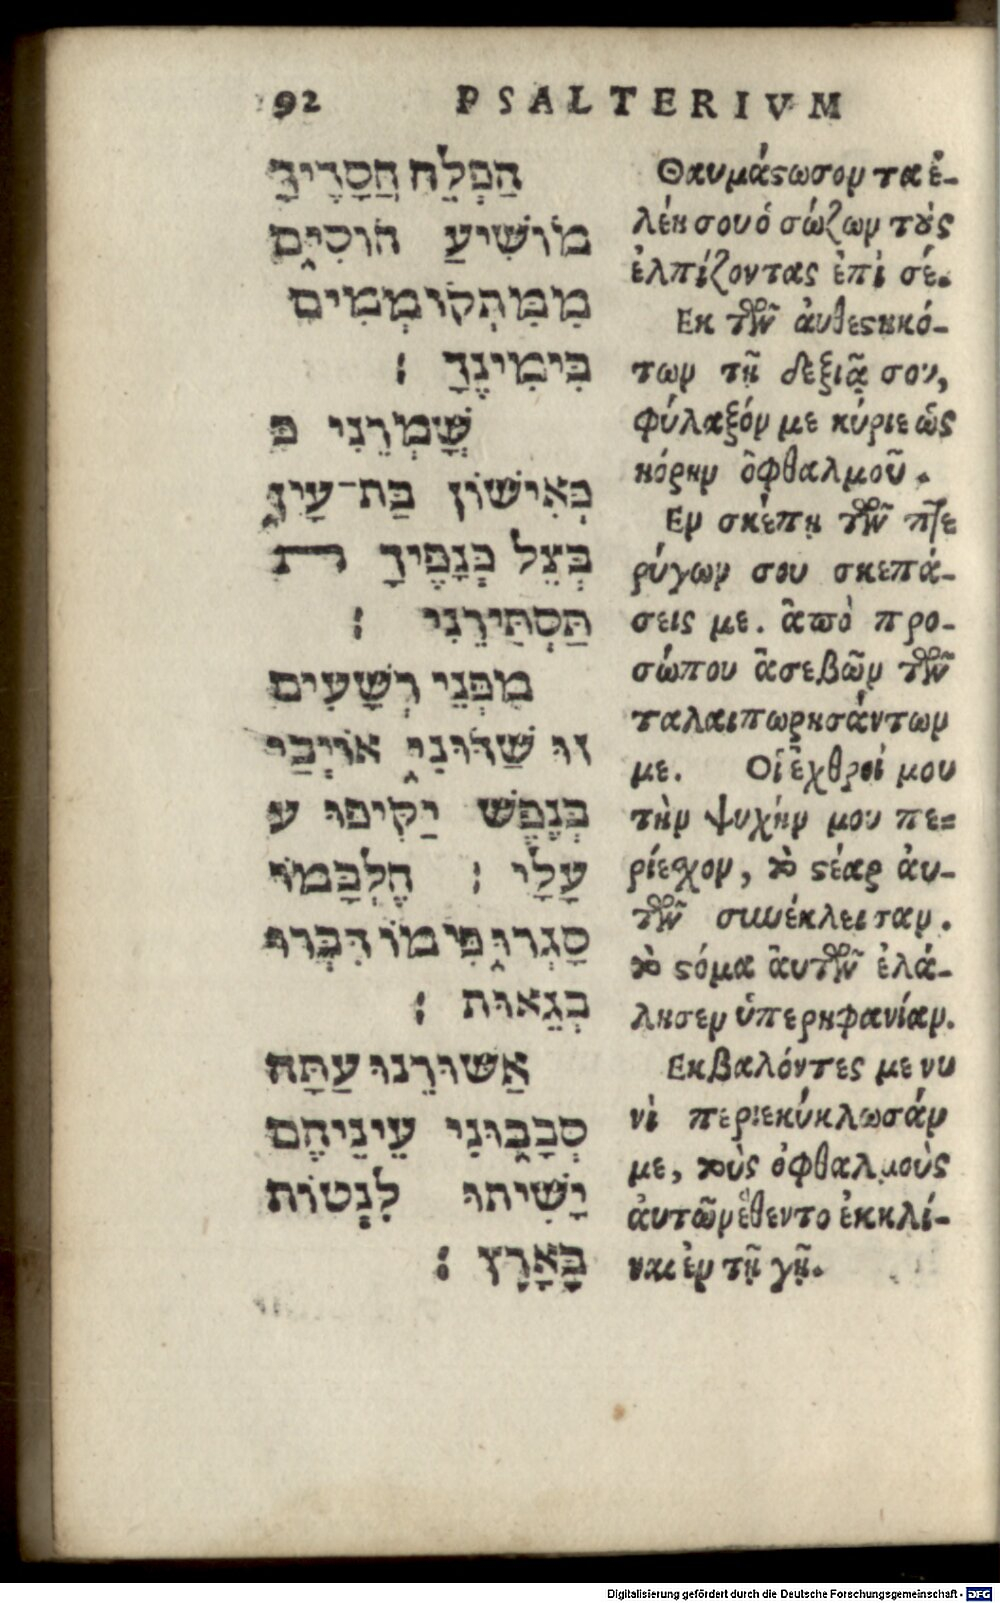 92 PSALTERIVM
הַפְלֵה חֲסָדֶיךָ
מוֹשִׁיעַ חוֹסִים
מִמִּתְקוֹמְמִים
בִּימִינֶךָ :
שָׁמְרֵנִי כּ
כְּאִישׁוֹן בַּת־עָיִן
בְּצֵל כְּנָפֶיךָ ת
תַּסְתִּירֵנִי :
מִפְּנֵי רְשָׁעִים
זוּ שַׁדּוּנִי אוֹיְבַי
בְּנֶפֶשׁ יַקִּיפוּ ע
עָלָי : חֶלְבָּמוֹ
סָגְרוּ פִּימוֹ דִּבְּרוּ
בְגֵאוּת :
אַשּׁוּרֵנוּ עַתָּה
סְבָבוּנִי עֵינֵיהֶם
יָשִׁיתוּ לִנְטוֹת
בָּאָרֶץ :
Θαυμάϛωσον τα ἐ-
λέη σου ὁ σώζων τοὺς
ἐλπίζοντας ἐπὶ σέ.
Εκ τῶν ἀνθεϛηκό-
των τῇ δεξιᾷ σου,
φύλαξόν με κύριε ὡς
κόρην ὀφθαλμοῦ.
Εν σκέπῃ τῶν πτε
ρύγων σου σκεπά-
σεις με. ἀπὸ προ-
σώπου ἀσεβῶν τῶν
ταλαιπωρησάντων
με. Οἱ ἐχθροί μου
τὴν ψυχήν μου πε-
ριέσχον, τὸ ϛέαρ ἀυ-
τῶν συνέκλεισαν.
τὸ ϛόμα ἀυτῶν ἐλά-
λησεν ὑπερηφανίαν.
Εκβαλόντες με νυ
νὶ περιεκύκλωσάν
με, τοὺς ὀφθαλμοὺς
ἀυτῶν ἔθεντο ἐκκλί-
ναι ἐν τῇ γῇ.
Digitalisierung gefördert durch die Deutsche Forschungsgemeinschaft - DFG